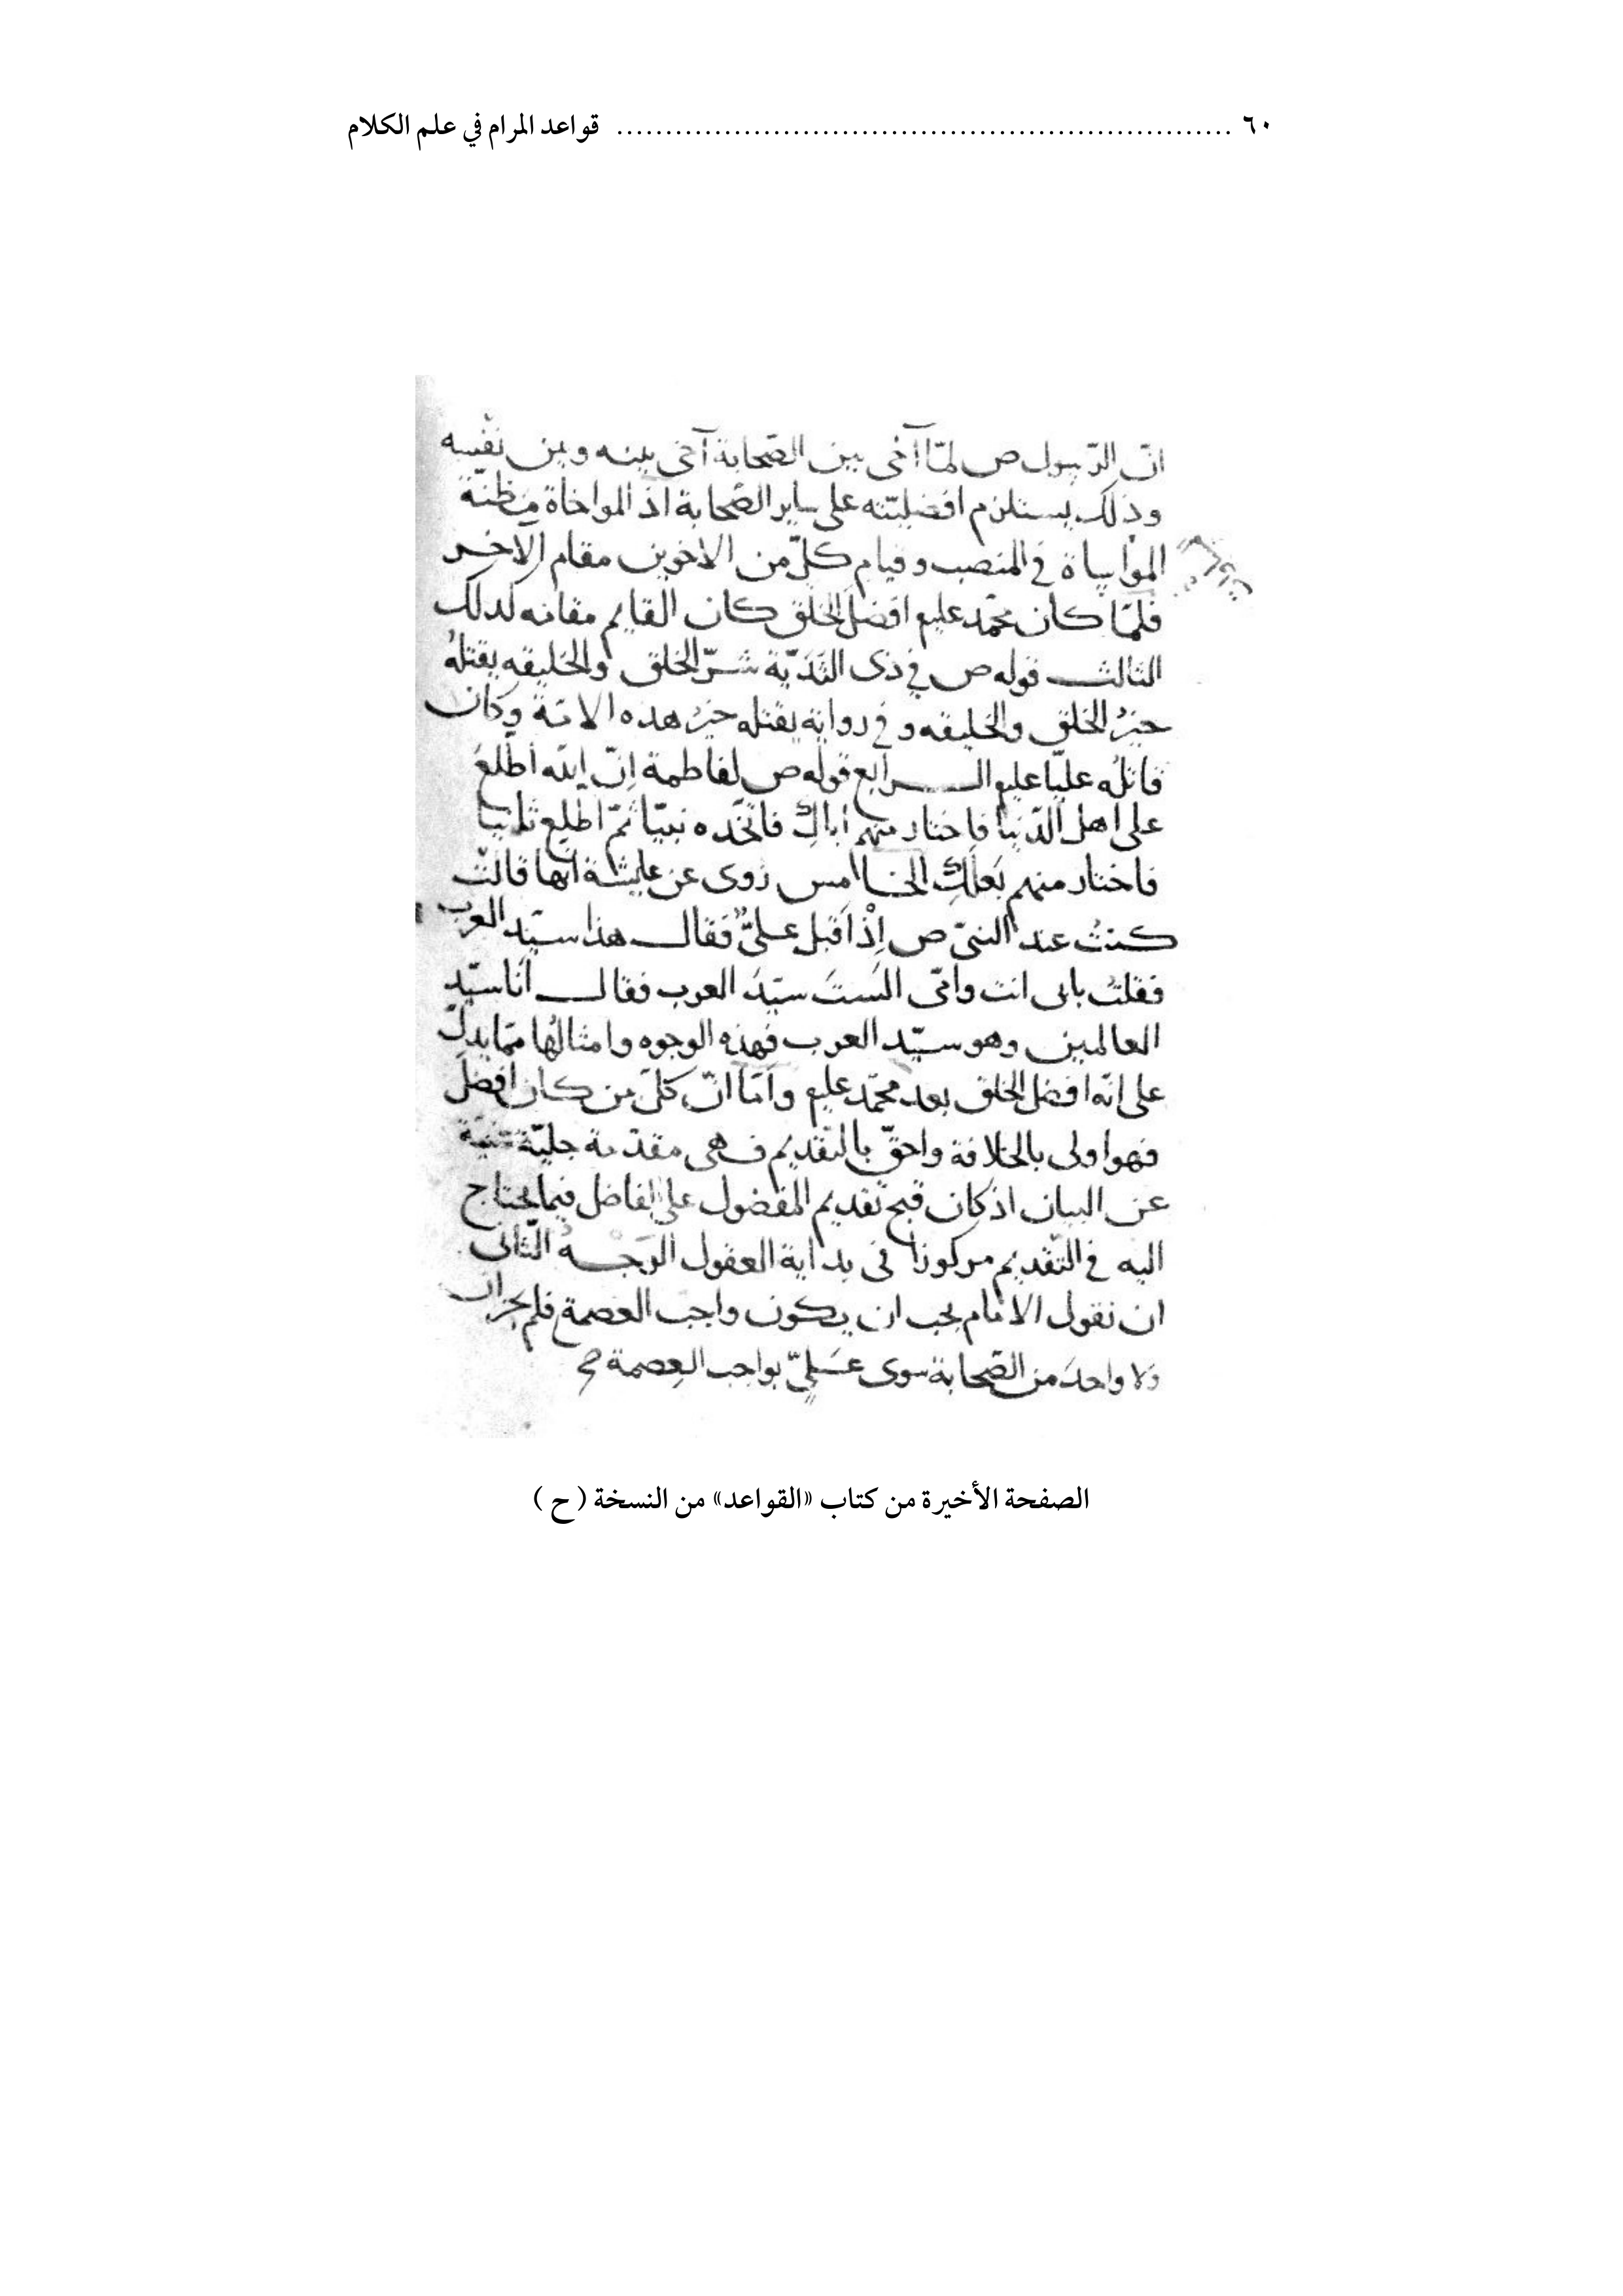 ٦٠ ............................................................... قواعد المرام في علم الكلام
انّ الرّسول ص لمّا آخى بين الصّحابة آخى بينه وبين نفسه
وذلك يستلزم افضليّته على ساير الصّحابة اذ المواخاة مظنّة
المواساة في المنصب وقيام كلّ من الاخوين مقام الاخر
فلمّا كان محمّد عليه افضل الخلق كان القايم مقامه كذلك
الثالث قوله ص في ذى الثديّة شرّ الخلق والخليقه يقتلهُ
خيرُ الخلق والخليقه وفي رواية يقتله خيرُ هذه الامّة وكان
قاتلُه عليّا عليه الرابع قوله ص لفاطمة إنّ الله اطّلعَ
على اهل الدّنيا فاختار منهم اباكِ فاتّخذه نبيّا ثمّ اطّلع ثانيا
فاختار منهم بَعلَكِ الخامس رُوى عن عايشة انها قالت
كنتُ عند النبىّ ص إذْ اَقبل علىٌّ فقال هذا سيّد العرب
فقلتُ بابى انت وامّى الَستَ سيّدَ العرب فقال اَنا سيّد
العالمين وهو سيّد العرب فهذه الوجوه وامثالُها ممّا يدلّ
على انّه افضل الخلق بعد محمّد عليه وامّا انّ كلّ من كان افضل
فهو اولى بالخلافة واحقّ بالتقديم فهى مقدّمة جليّة غنيّة
عن البيان اذ كان قبح تقديم المفضول على الفاضل فيما يحتاج
اليه في التّقديم مركوزا فى بداية العقول الوَجْهُ الثّانى
ان نقول الامام يجب ان يكون واجب العصمة فلم يجز ان
ولا واحدَ من الصّحابة سوى عَلىّ بواجب العِصمة
الصفحة الأخيرة من كتاب «القواعد» من النسخة ( ح )